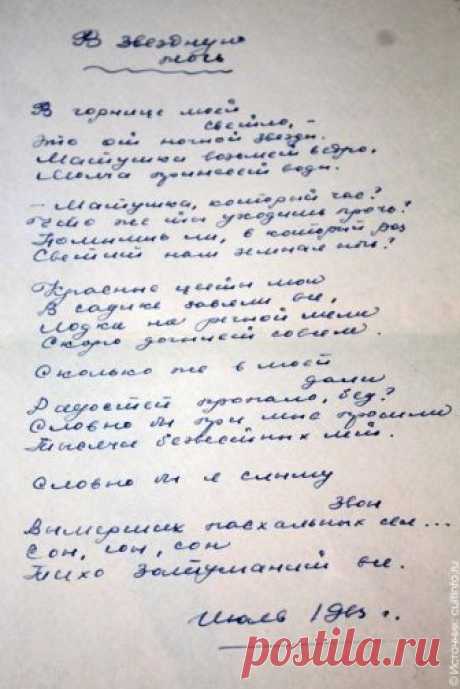 В звездную
ночь
В горнице моей
светло, –
Это от ночной звезды.
Матушка возьмет ведро,
Молча принесет воды.
– Матушка, который час?
Что же ты уходишь прочь?
Помнишь ли, в который раз
Светит нам земная ночь?
Красные цветы мои
В садике завяли все,
Лодка на речной мели
Скоро догниет совсем.
Сколько же в моей
дали
Радостей пропало, бед?
Словно бы при мне прошли
Тысячи безвестных лет.
Словно бы я слышу
звон
Вымерших пасхальных сел...
Сон, сон, сон
Тихо затуманит все.
Июль 1963 г.
© Источник: cultinfo.ru
postila.ru